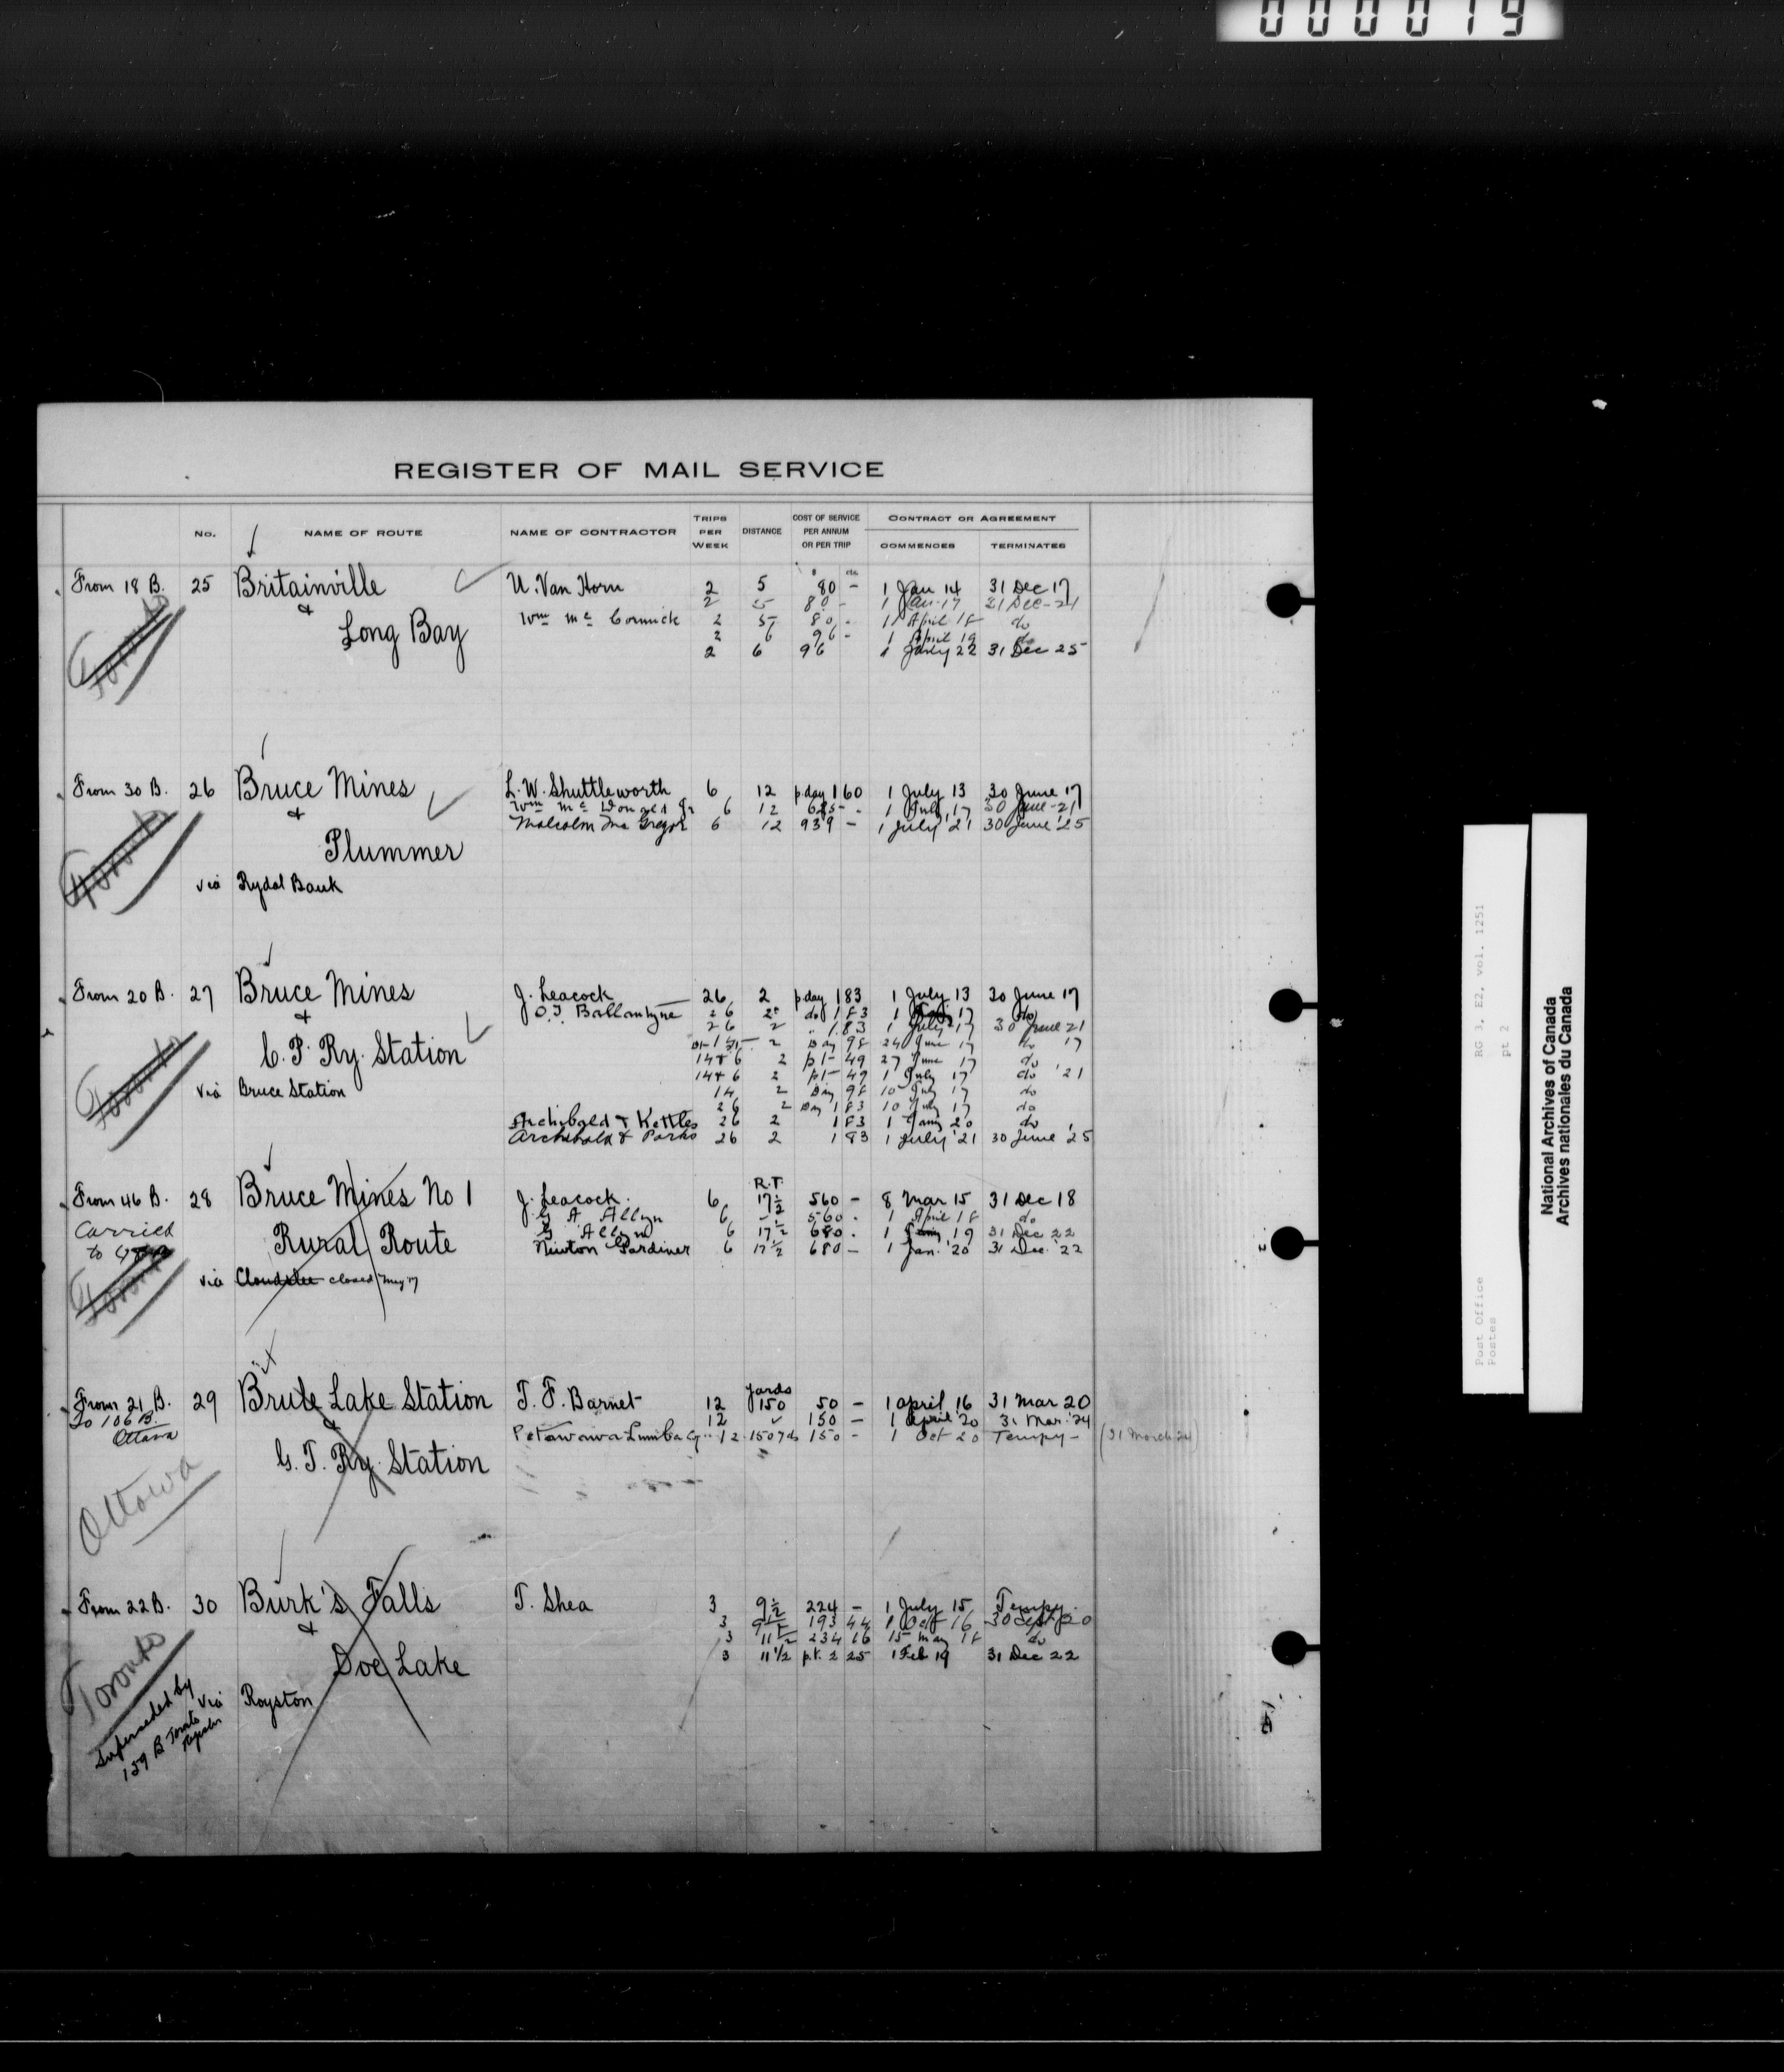 000019
REGISTER OF MAIL SERVICE
No. NAME OF ROUTE NAME OF CONTRACTOR TRIPS PER WEEK DISTANCE COST OF SERVICE PER ANNUM OR PER TRIP CONTRACT OR AGREEMENT COMMENCES TERMINATES
From 18 B. 25 Britainville U. Van Horn 2 5 80 - 1 Jan 14 31 Dec 17
2 5 80 - 1 Jan 17 31 Dec - 21
& Wm Mc Cormick 2 5 80 - 1 April 18 do
Long Bay 2 6 96 - 1 April 19 do
2 6 96 1 Jany 22 31 Dec 25
Toronto
From 30 B. 26 Bruce Mines L. W. Shuttleworth 6 12 p day 1 60 1 July 13 30 June 17
Wm Mc Donald Jr 6 12 685 - 1 July 17 30 June - 21
& Malcolm Mc Gregor 6 12 939 - 1 July '21 30 June '25
Plummer
Toronto
via Rydal Bank
From 20 B. 27 Bruce Mines J. Leacock 26 2 p day 1 83 1 July 13 30 June 17
& O. J. Ballantyne 26 2 do 1 83 1 17 do
26 2 " 1.83 1 July 17 30 June 21
C. P. Ry. Station 2 Day 98 24 June 17 do 17
14 & 6 2 p t 49 27 June 17 do
14 & 6 2 p t 49 1 July 17 do '21
Toronto
via Bruce Station 14 2 Day 98 10 July 17 do
26 2 Day 1 83 10 July 17 do
Archibald & Kettles 26 2 1 83 1 Jany 20 do
Archibald & Parks 26 2 1 83 1 July '21 30 June '25
R.T.
From 46 B. 28 Bruce Mines No 1 J. Leacock. 6 17½ 560 - 8 Mar 15 31 Dec 18
Carried G A Allyn 6 560 - 1 April 18 do
to Rural Route G. Allyn 6 17½ 680 . 1 Jany 19 31 Dec 22
Newton Gardiner 6 17½ 680 - 1 Jan. '20 31 Dec. '22
Toronto
via Cloudslee closed May '17
yards
From 21 B. 29 Brule Lake Station T. F. Barnet 12 150 50 - 1 April 16 31 Mar 20
To 106 B. & 12 150 - 1 April '20 31 Mar. '24
Ottawa Petawawa Lumber Cy 12 150 yds 150 - 1 Oct 20 Tempy - (31 March 24)
G. T. Ry. Station
Ottawa
From 22 B. 30 Burk's Falls T. Shea 3 9½ 224 - 1 July 15 Tempy.
& 3 9½ 193 44 1 Oct 16 30 Sept 20
3 11½ 234 16 15 May 18 do
Doe Lake 3 11½ p.t. 2 25 1 Feb 19 31 Dec 22
Toronto
via Royston
Superseded by
159 B Toronto
Register
RG 3, E2, vol. 1251
pt 2
Post Office
Postes
National Archives of Canada
Archives nationales du Canada